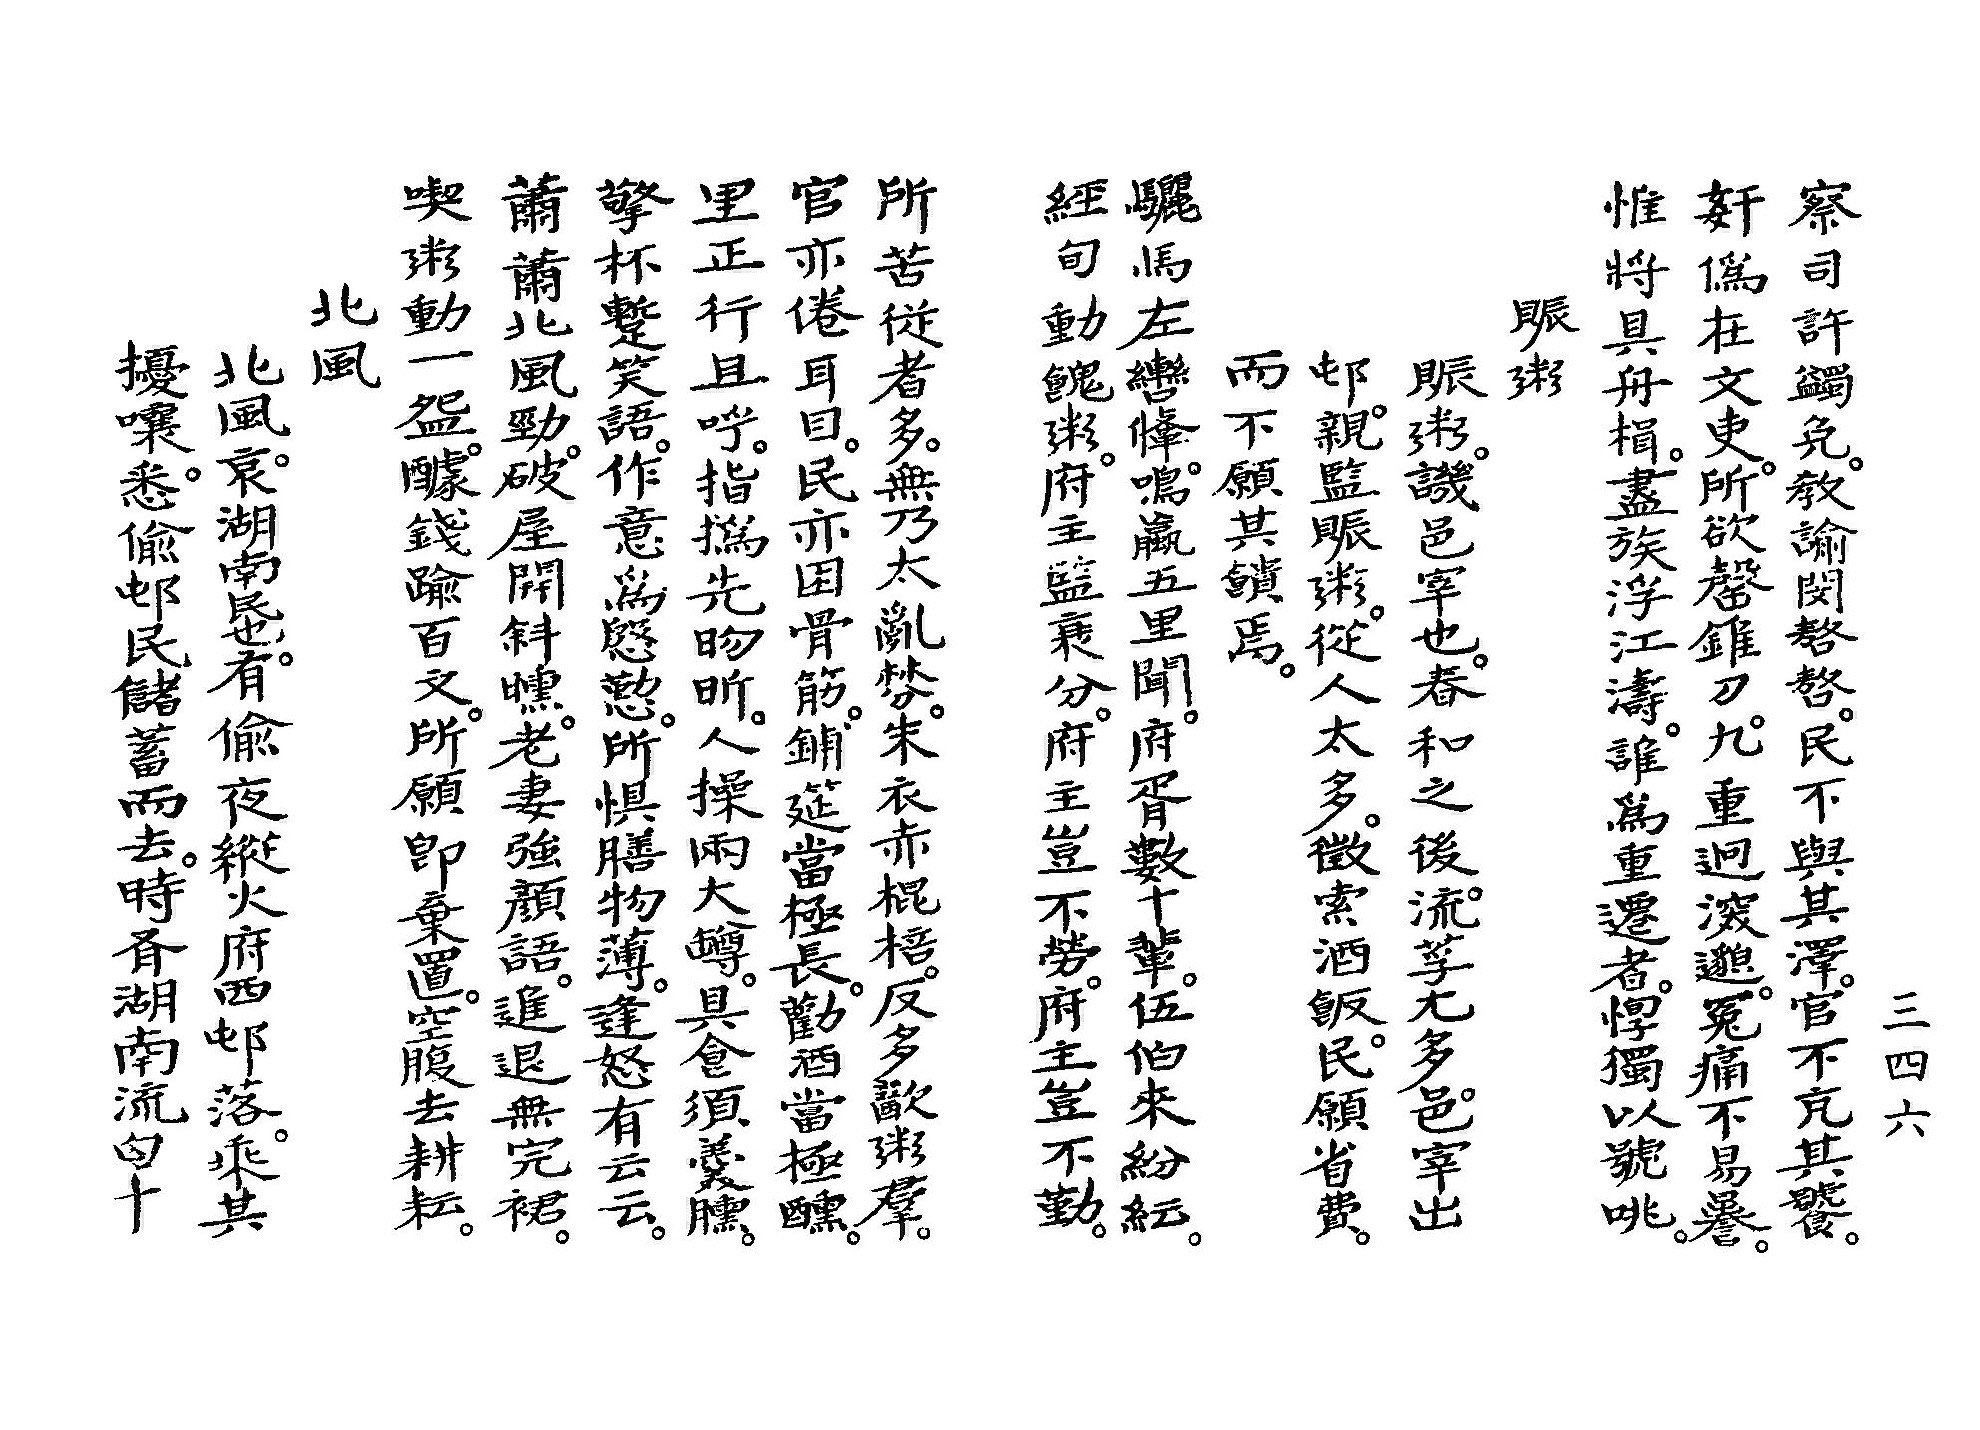 三四六
察司許蠲免。教諭閔嗸嗸。民不與其澤。官不亢其饕。
姧僞在文吏。所欲罄錐刀。九重迥深邈。冤痛不易暴。
惟將具舟楫。盡族浮江濤。誰爲重遷者。惸獨以號咷。
賑粥
賑粥。譏邑宰也。春和之後。流莩尤多。邑宰出
邨。親監賑粥。從人太多。徵索酒飯。民願省費。
而不願其饋焉。
驪馬左轡㤚。鳴驘五里聞。府胥數十輩。伍伯來紛紜。
經旬動餽粥。府主監衰分。府主豈不勞。府主豈不勤。
所苦從者多。無乃太亂棼。朱衣赤棍棓。反多歠粥羣。
官亦倦耳目。民亦困骨筋。鋪筵當極長。勸酒當極醺。
里正行且呼。指撝先昒昕。人操兩大罇。具食須羹臐。
擎杯蹔笑語。作意爲慇懃。所惧膳物薄。逢怒有云云。
蕭蕭北風勁。破屋開斜曛。老妻強顏語。進退無完裙。
喫粥動一盌。醵錢踰百文。所願卽棄置。空腹去耕耘。
北風
北風。哀湖南民也。有偷夜縱火府西邨落。乘其
擾嚷。悉偷邨民儲蓄而去。時有湖南流匄十